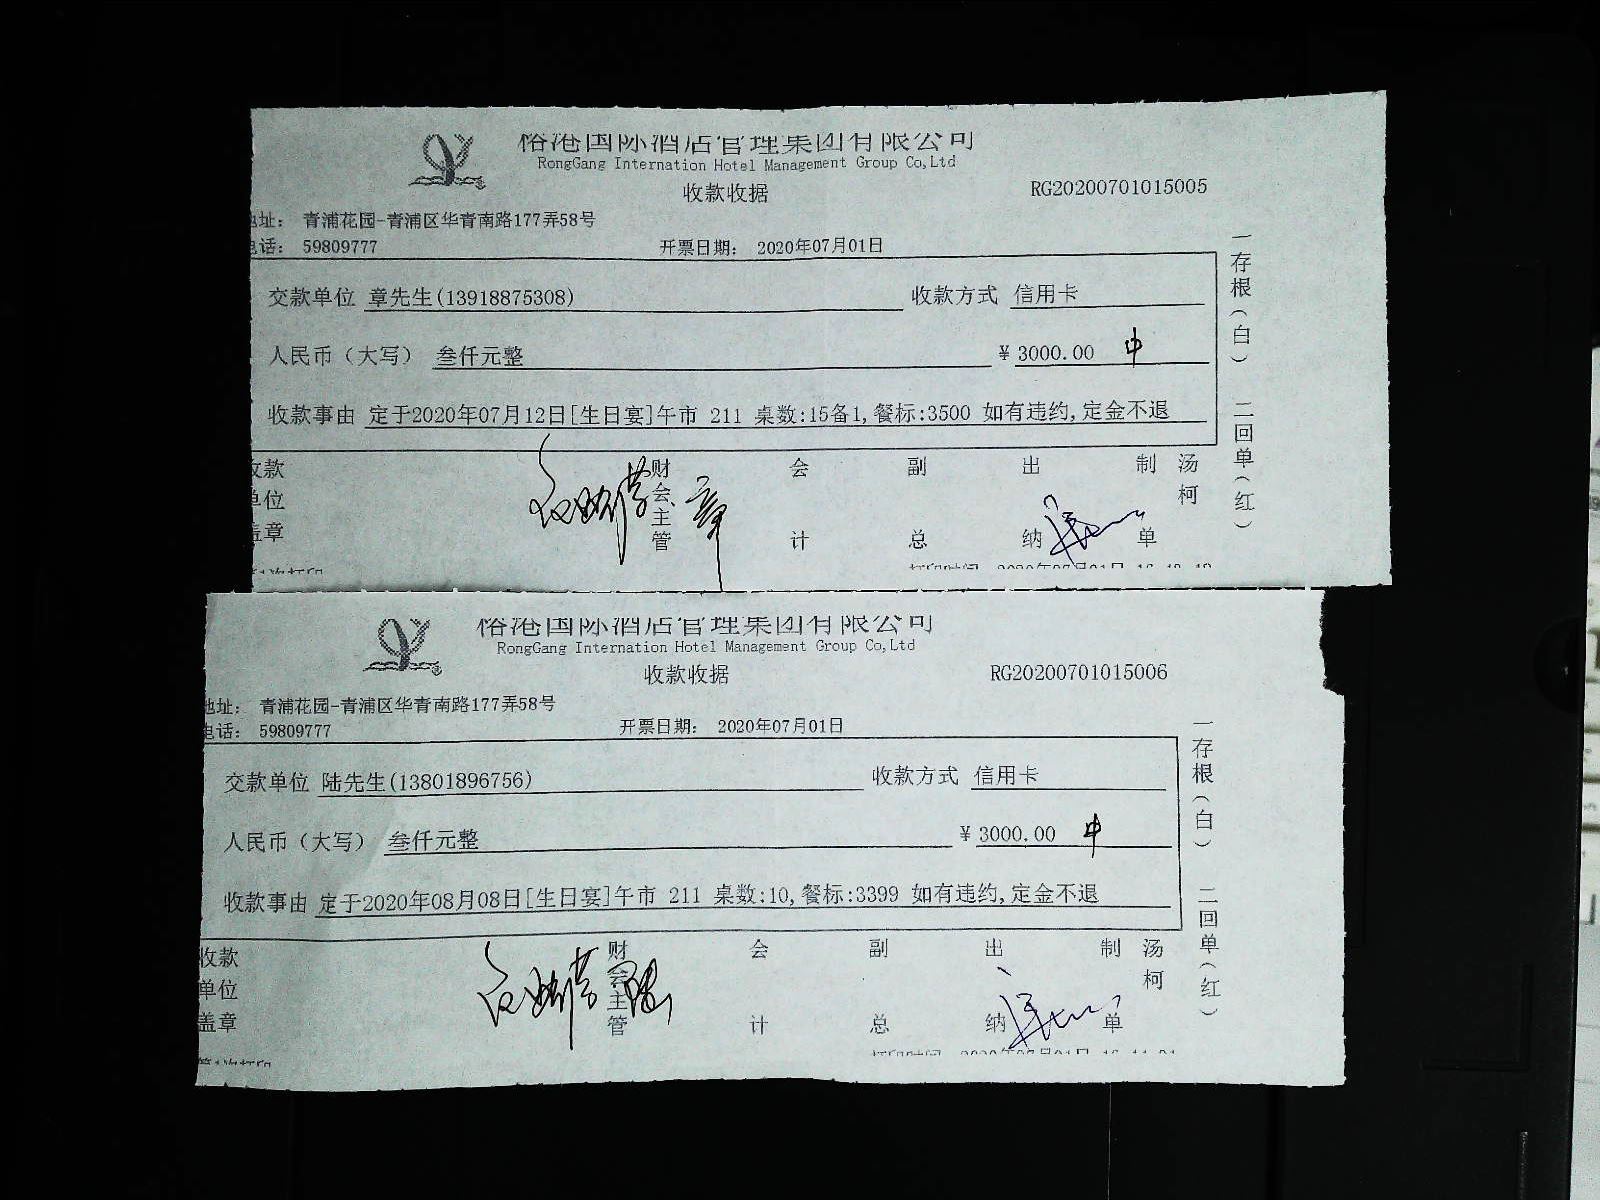 裕港国际酒店管理集团有限公司
RongGang Internation Hotel Management Group Co,Ltd
收款收据 RG20200701015005
地址: 青浦花园-青浦区华青南路177弄58号
电话: 59809777 开票日期: 2020年07月01日
交款单位 章先生(13918875308) 收款方式 信用卡
人民币（大写） 叁仟元整 ¥3000.00 中
收款事由 定于2020年07月12日[生日宴]午市 211 桌数:15备1,餐标:3500 如有违约,定金不退
一存根(白) 二回单(红)
收款单位盖章 财会主管 章 会计 副总 出纳 制单 汤柯
第1次打印 打印时间 2020年07月01日
裕港国际酒店管理集团有限公司
RongGang Internation Hotel Management Group Co,Ltd
收款收据 RG20200701015006
地址: 青浦花园-青浦区华青南路177弄58号
电话: 59809777 开票日期: 2020年07月01日
交款单位 陆先生(13801896756) 收款方式 信用卡
人民币（大写） 叁仟元整 ¥3000.00 中
收款事由 定于2020年08月08日[生日宴]午市 211 桌数:10,餐标:3399 如有违约,定金不退
一存根(白) 二回单(红)
收款单位盖章 财会主管 陆 会计 副总 出纳 制单 汤柯
第1次打印 打印时间 2020年07月01日